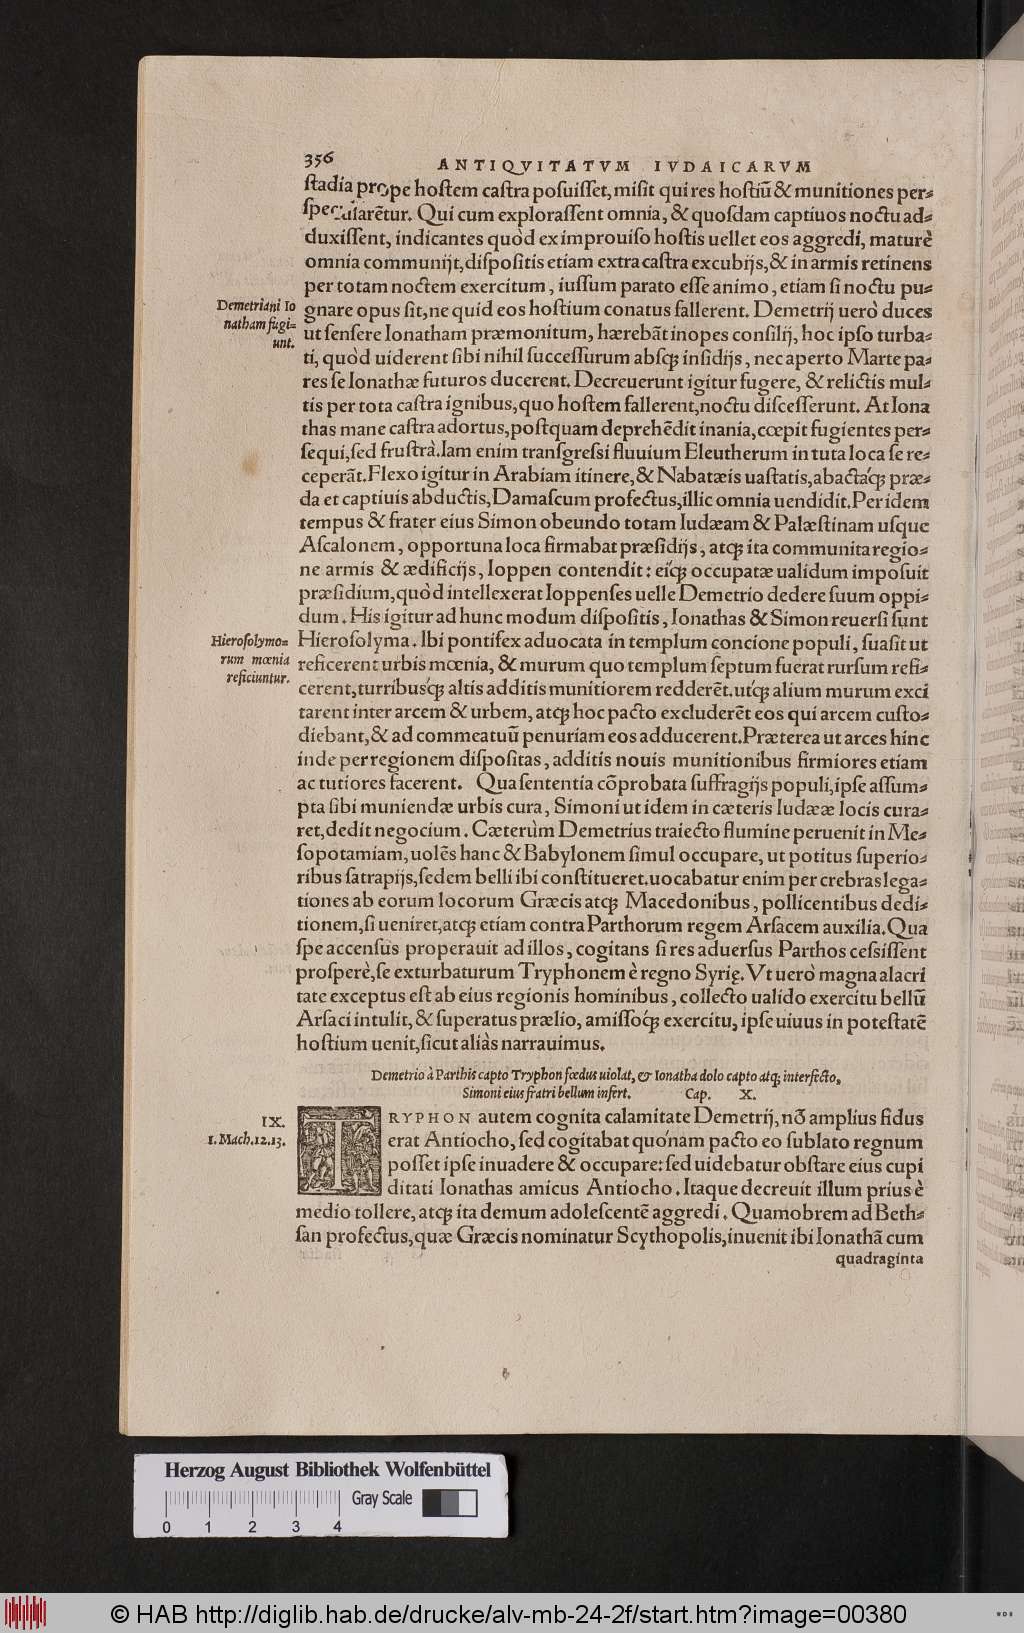 356
ANTIQVITATVM IVDAICARVM
stadia prope hostem castra posuisset, misit qui res hostiũ & munitiones per=
specularẽtur. Qui cum explorassent omnia, & quosdam captiuos noctu ad=
duxissent, indicantes quòd ex improuiso hostis uellet eos aggredi, maturè
omnia communijt, dispositis etiam extra castra excubijs, & in armis retinens
per totam noctem exercitum, iussum parato esse animo, etiam si noctu pu=
Demetriani Io
natham fugi=
unt.
gnare opus sit, ne quid eos hostium conatus fallerent. Demetrij uerò duces
ut sensere Ionatham præmonitum, hærebãt inopes consilij, hoc ipso turba=
ti, quòd uiderent sibi nihil successurum absq; insidijs, nec aperto Marte pa=
res se Ionathæ futuros ducerent. Decreuerunt igitur fugere, & relictis mul=
tis per tota castra ignibus, quo hostem fallerent, noctu discesserunt. At Iona
thas mane castra adortus, postquam deprehẽdit inania, cœpit fugientes per=
sequi, sed frustrà. Iam enim transgressi fluuium Eleutherum in tuta loca se re=
ceperãt. Flexo igitur in Arabiam itinere, & Nabatæis uastatis, abactáq; præ=
da et captiuis abductis, Damascum profectus, illic omnia uendidit. Per idem
tempus & frater eius Simon obeundo totam Iudæam & Palæstinam usque
Ascalonem, opportuna loca firmabat præsidijs, atq; ita communita regio=
ne armis & ædificijs, Ioppen contendit: eíq; occupatæ ualidum imposuit
præsidium, quòd intellexerat Ioppenses uelle Demetrio dedere suum oppi=
dum. His igitur ad hunc modum dispositis, Ionathas & Simon reuersi sunt
Hierosolymo=
rum mœnia
reficiuntur.
Hierosolyma. Ibi pontifex aduocata in templum concione populi, suasit ut
reficerent urbis mœnia, & murum quo templum septum fuerat rursum refi=
cerent, turribusq́; altis additis munitiorem redderẽt. utq́; alium murum exci
tarent inter arcem & urbem, atq; hoc pacto excluderẽt eos qui arcem custo=
diebant, & ad commeatuũ penuriam eos adducerent. Præterea ut arces hinc
inde per regionem dispositas, additis nouis munitionibus firmiores etiam
ac tutiores facerent. Qua sententia cõprobata suffragijs populi, ipse assum=
pta sibi muniendæ urbis cura, Simoni ut idem in cæteris Iudææ locis cura=
ret, dedit negocium. Cæterùm Demetrius traiecto flumine peruenit in Me=
sopotamiam, uolẽs hanc & Babylonem simul occupare, ut potitus superio=
ribus satrapijs, sedem belli ibi constitueret. uocabatur enim per crebras lega=
tiones ab eorum locorum Græcis atq; Macedonibus, pollicentibus dedi=
tionem, si ueniret, atq; etiam contra Parthorum regem Arsacem auxilia. Qua
spe accensus properauit ad illos, cogitans si res aduersus Parthos cessissent
prosperè, se exturbaturum Tryphonem è regno Syrię. Vt uerò magna alacri
tate exceptus est ab eius regionis hominibus, collecto ualido exercitu bellũ
Arsaci intulit, & superatus prælio, amissoq́; exercitu, ipse uiuus in potestatẽ
hostium uenit, sicut aliàs narrauimus.
Demetrio à Parthis capto Tryphon fœdus uiolat, & Ionatha dolo capto atq; interfecto,
Simoni eius fratri bellum infert. Cap. X.
IX.
1. Mach. 12. 13.
TRYPHON autem cognita calamitate Demetrij, nõ amplius fidus
erat Antiocho, sed cogitabat quónam pacto eo sublato regnum
posset ipse inuadere & occupare: sed uidebatur obstare eius cupi
ditati Ionathas amicus Antiocho. Itaque decreuit illum prius è
medio tollere, atq; ita demum adolescentẽ aggredi. Quamobrem ad Beth=
san profectus, quæ Græcis nominatur Scythopolis, inuenit ibi Ionathã cum
quadraginta
Herzog August Bibliothek Wolfenbüttel
Gray Scale
0 1 2 3 4
© HAB http://diglib.hab.de/drucke/alv-mb-24-2f/start.htm?image=00380